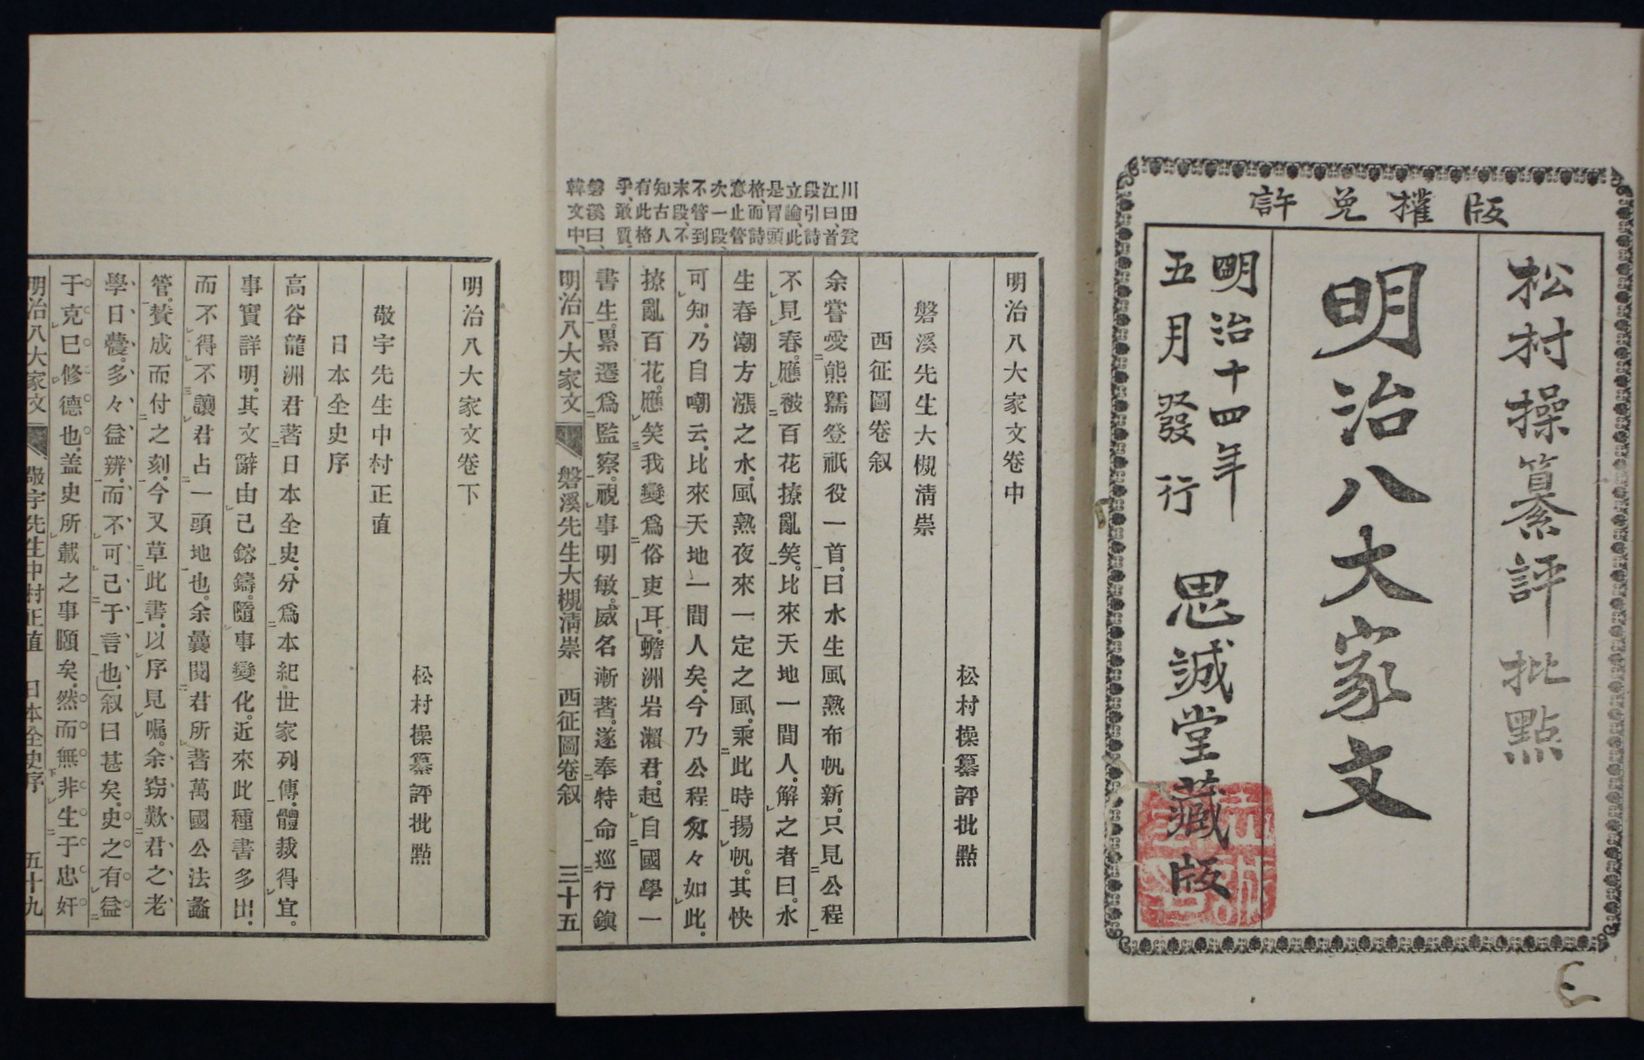 版權免許
松村操纂評批點
明治八大家文
明治十四年
五月發行
思誠堂藏版
明治八大家文卷中
松村操纂評批點
磐溪先生大槻淸崇
西征圖卷叙
余嘗愛熊孺登祇役一首。曰水生風熟布帆新。只見公程
不見春。應被百花撩亂笑。比來天地一間人。解之者曰。水
生春潮方漲之水。風熟夜來一定之風。乘此時揚帆。其快
可知。乃自嘲云。比來天地一間人矣。今乃公程匆々如此。
撩亂百花。應笑我變爲俗吏耳。蟾洲岩瀨君。起自國學一
書生。累遷爲監察。視事明敏。威名漸著。遂奉特命巡行鎭
明治八大家文 磐溪先生大槻淸崇 西征圖卷叙 三十五
川田甕
江曰、首
段引詩
立論、此
是冒頭
格、而詩
意止管
次一段、
不管到
末段、不
知古人
有此格
乎、敢質、
磐溪曰、
韓文中
明治八大家文卷下
松村操纂評批點
敬宇先生中村正直
日本全史序
高谷龍洲君著日本全史。分爲本紀世家列傳。體裁得宜。
事實詳明。其文辭由己鎔鑄。隨事變化。近來此種書多出。
而不得不讓君占一頭地也。余曩閱君所著萬國公法蠡
管。贊成而付之刻。今又草此書。以序見囑。余竊歎君之老
學日鬯。多々益辨。而不可已于言也。叙曰甚矣。史之有益
于克己修德也。盖史所載之事頤矣。然而無非生于忠奸
明治八大家文 敬宇先生中村正直 日本全史序 五十九